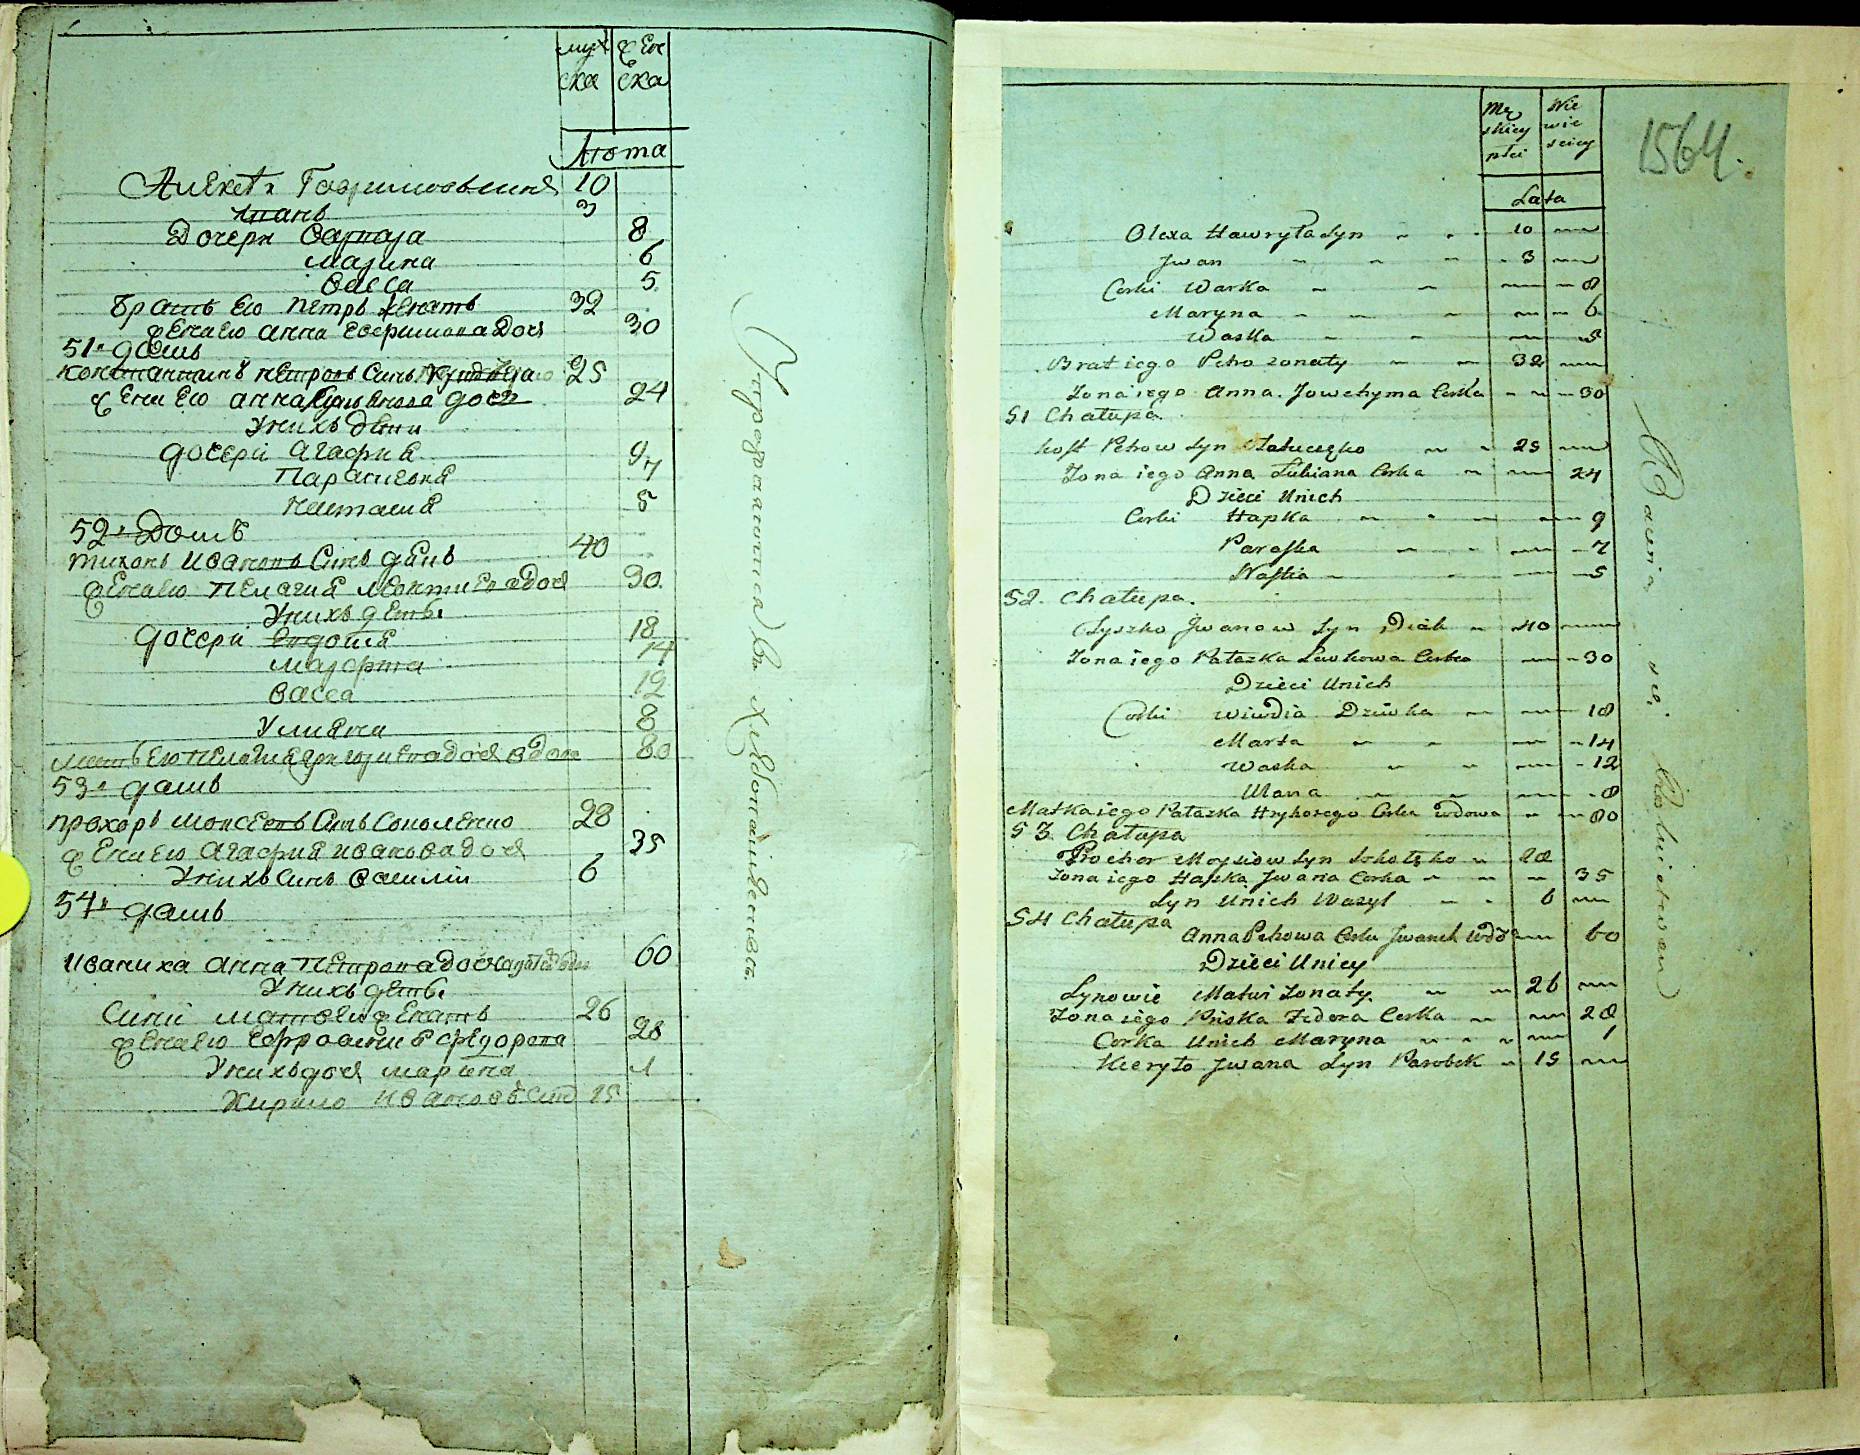 муж ска
жен ска
Лѣта
Алекса Гавриловъ Синъ 10
Іванъ 3
Дочери Варвара 8
Марина 6
Васса 5
Братъ Его Петръ женатъ 32
жена Его Анна Ефримова Доч 30
51й домъ
Константинъ Петровъ Синъ 25
жена Его Анна дочь 24
У нихъ дѣти
дочери Агафия 9
Параскевия 7
Настасия 5
52й Домъ
Тихонъ Ивановъ Синъ дякъ 40
жена Его Пелагия доч 30
У нихъ деть
дочери Евдокия 18
Марфта 14
Васса 12
Улияна 8
Мать Его Пелагия Григориева доч вдова 80
53й домъ
Прохоръ Моисеевъ Синъ Соколенко 28
жена Его Агафия Иванова доч 35
У нихъ Синъ Василии 6
54й домъ
Иваниха Анна Петрова доч 60
У нихъ деть
Сини Матвеи женатъ 26
жена Его Ефросиния Федорова 28
У нихъ доч Марина 1
Кирило Ивановъ Синъ 15
1564.
Męskiey płci
Niewieściey
Lata
Olexa Hawryła Syn 10
Jwan 3
Corki Warka 8
Maryna 6
Waska 5
Brat iego Petro zonaty 32
Zona iego Anna Jowchyma Corka 30
51 Chałupa
Kost Petrow Syn 25
Zona iego Anna Łukiana Corka 24
Dzieci Unich
Corki Hapka 9
Paraska 7
Nastia 5
52. Chałupa.
Tyszko Jwanow Syn Diak 40
Zona iego Pałazka Lewkowa Corka 30
Dzieci Unich
Corki Wiwdia Dziwka 18
Marta 14
Waska 12
Ulana 8
Matka iego Pałazka Hryhorego Corka wdowa 80
53 Chałupa
Prochor Moysiow Syn 28
Zona iego Hapka Jwana Corka 35
Syn Unich Wasyl 6
54 Chałupa
Anna Petrowa Corka Jwanich Wdo 60
Dzieci Unicy
Synowie Matwi Zonaty 26
Zona iego Pryska Fedora Corka 28
Corka Unich Maryna 1
Kieryło Jwana Syn Parobek 15